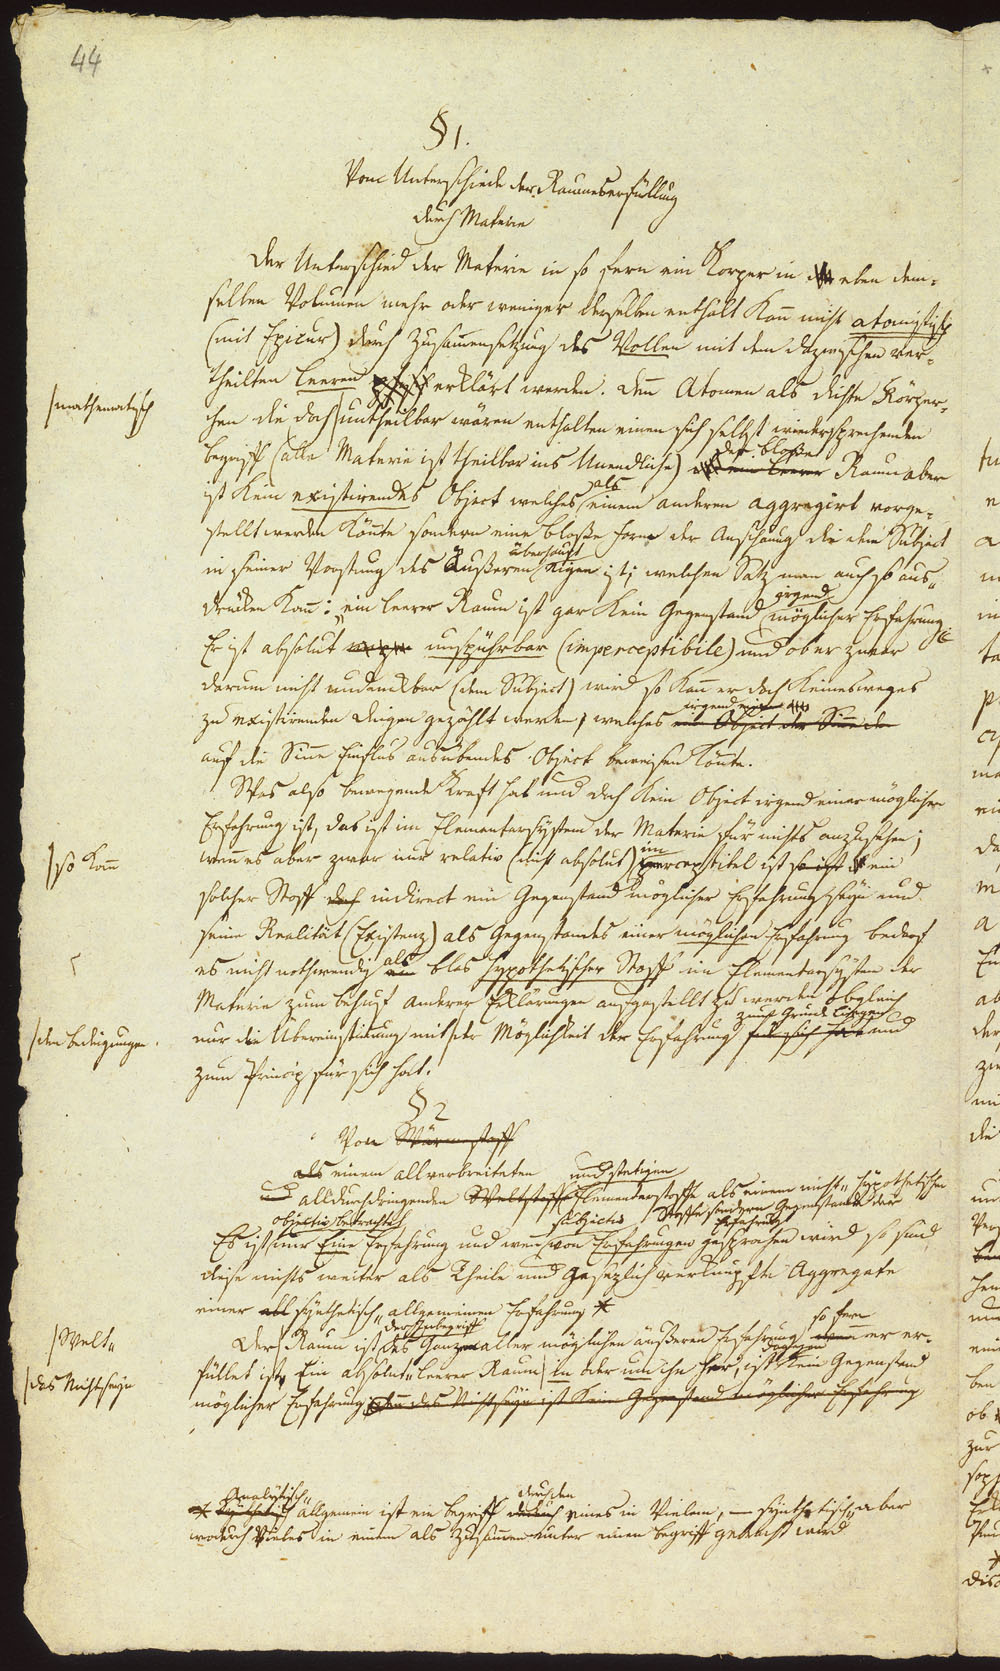 44
§ 1.
Vom Unterschiede der Raumeserfüllung
durch Materie
Der Unterschied der Materie in so fern ein Körper in eben dem-
selben Volumen mehr oder weniger derselben enthält kan nicht atomistisch
(mit Epicur) durch Zusammensetzung des Vollen mit dem dazwischen ver-
theilten Leeren erklärt werden. Denn Atomen als dichte Körper-
/mathematisch
chen die doch /untheilbar wären enthalten einen sich selbst wiedersprechenden
Begriff (alle Materie ist theilbar ins Unendliche) der bloße Raum aber
ist kein existirendes Object welches als einem anderen aggregirt vorge-
stellt werden könte sondern eine bloße Form der Anschauung die dem Subject
in seiner Vorstellung des Äußeren überhaupt eigen ist; welchen Satz man auch so aus-
drücken kan: „ein leerer Raum ist gar kein Gegenstand irgend möglicher Erfahrung.
Er ist absolut unspührbar (imperceptibile) und ob er zwar
darum nicht undenkbar (dem Subject) wird so kan er doch keinesweges
zu existirenden Dingen gezählt werden, welches irgend ein Object der Sinne
auf die Sinne Einflus ausübendes Object beweisen könte.
Was also bewegende Kraft hat und doch kein Object irgend einer möglichen
Erfahrung ist, das ist im Elementarsystem der Materie für nichts anzusehen;
wenn es aber zwar nur relativ (nicht absolut) imperceptibel ist so ist ein
/so kan
solcher Stoff doch indirect ein Gegenstand möglicher Erfahrung seyn und
seine Realität (Existenz) als Gegenstandes einer möglichen Erfahrung bedarf
es nicht nothwendig als blos hypothetischer Stoff im Elementarsystem der
Materie zum Behuf anderer Erklärungen aufgestellt zu werden obgleich
nur die Übereinstimmung mit /der Möglichkeit der Erfahrung zum Grunde liegen für sich hat und
/den Bedingungen
zum Princip für sich hat.
§ 2
Von Wärmestoff
als einem allverbreiteten und stetigen
und alldurchdringenden Weltstoff Elementarstoffe als einem nicht-hypothetischen
Stoffe sondern Gegenstande der
Erfahrung
Es ist objectiv betrachtet nur Eine Erfahrung und wenn subjectiv von Erfahrungen gesprochen wird so sind
diese nichts weiter als Theile und gesetzlich verknüpfte Aggregate
einer all synthetisch-allgemeinen Erfahrung *
/Welt-
Der /Raum ist der Inbegriff des Ganzen aller möglichen äußeren Erfahrung so fern er er-
füllet ist. Ein absolut-leerer Raum / in oder um ihn her, ist dagegen kein Gegenstand
/das Nichtseyn
möglicher Erfahrung denn das Nichtseyn ist kein Gegenstand möglicher Erfahrung
* Analytisch- Synthetisch allgemein ist ein Begriff durch den eines in Vielem, — synthetisch- aber
wodurch Vieles in einem als zusammen unter einen Begriff gebracht wird